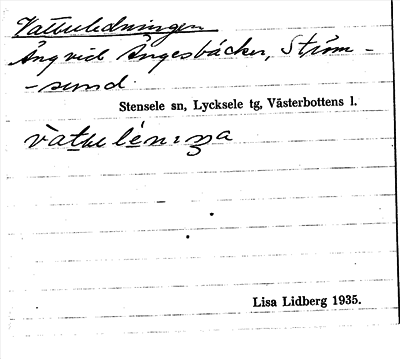 Vattuledningen
Äng vid Ängesbäcken, Ström-
-sund.
Stensele sn, Lycksele tg, Västerbottens l.
Lisa Lidberg 1935.